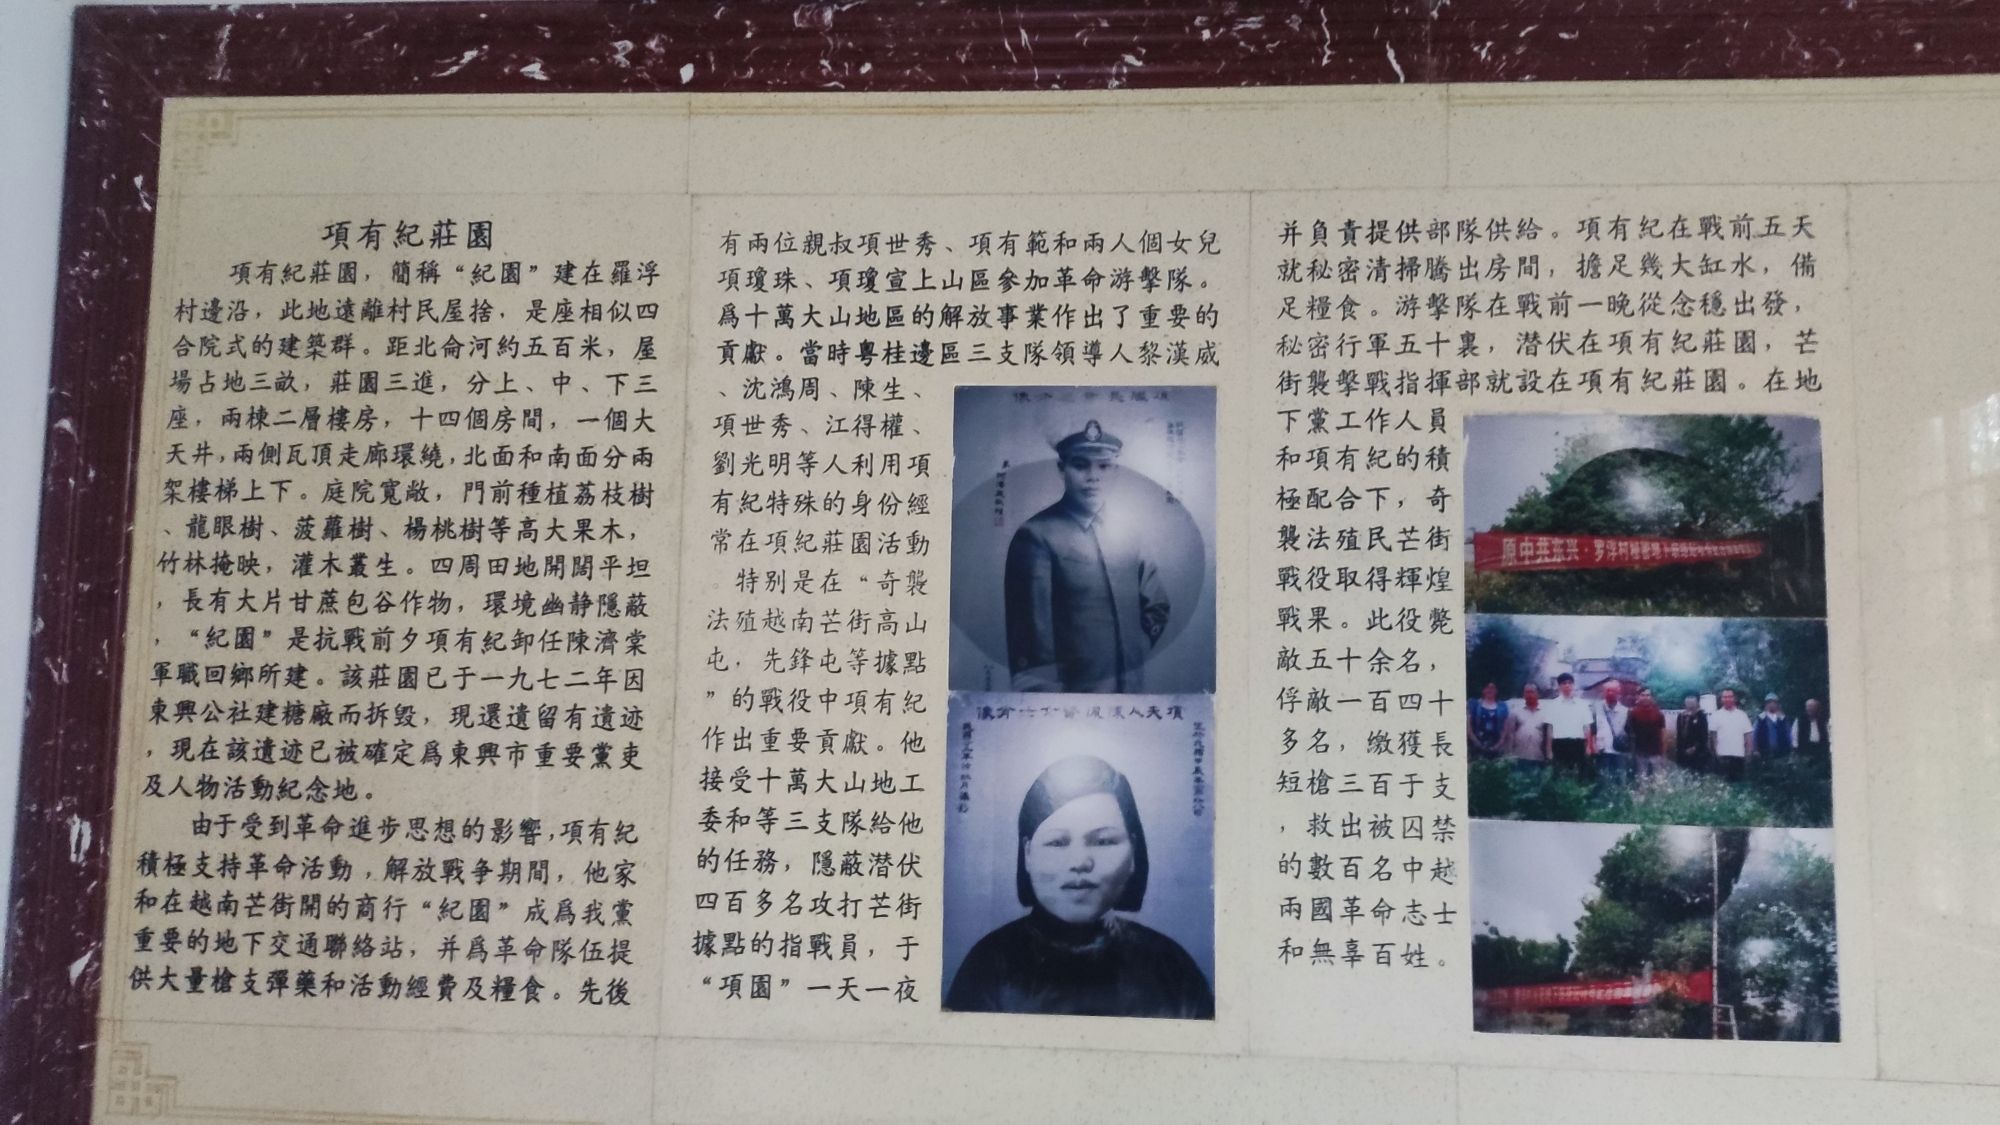 項有紀莊園
項有紀莊園，簡稱“紀園”建在羅浮
村邊沿，此地遠離村民屋捨，是座相似四
合院式的建築群。距北侖河約五百米，屋
場占地三畝，莊園三進，分上、中、下三
座，兩棟二層樓房，十四個房間，一個大
天井，兩側瓦頂走廊環繞，北面和南面分兩
架樓梯上下。庭院寬敞，門前種植荔枝樹
、龍眼樹、菠蘿樹、楊桃樹等高大果木，
竹林掩映，灌木叢生。四周田地開闊平坦
，長有大片甘蔗包谷作物，環境幽静隱蔽
，“紀園”是抗戰前夕項有紀卸任陳濟棠
軍職回鄉所建。該莊園已于一九七二年因
東興公社建糖廠而拆毀，現還遺留有遺迹
，現在該遺迹已被確定爲東興市重要黨吏
及人物活動紀念地。
由于受到革命進步思想的影響，項有紀
積極支持革命活動，解放戰争期間，他家
和在越南芒街開的商行“紀園”成爲我黨
重要的地下交通聯絡站，并爲革命隊伍提
供大量槍支彈藥和活動經費及糧食。先後
有兩位親叔項世秀、項有範和兩人個女兒
項瓊珠、項瓊宣上山區參加革命游擊隊。
爲十萬大山地區的解放事業作出了重要的
貢獻。當時粤桂邊區三支隊領導人黎漢威
、沈鴻周、陳生、
項世秀、江得權、
劉光明等人利用項
有紀特殊的身份經
常在項紀莊園活動
。特别是在“奇襲
法殖越南芒街高山
屯，先鋒屯等據點
”的戰役中項有紀
作出重要貢獻。他
接受十萬大山地工
委和等三支隊給他
的任務，隱蔽潜伏
四百多名攻打芒街
據點的指戰員，于
“項園”一天一夜
并負責提供部隊供給。項有紀在戰前五天
就秘密清掃騰出房間，擔足幾大缸水，備
足糧食。游擊隊在戰前一晚從念穩出發，
秘密行軍五十裏，潜伏在項有紀莊園，芒
街襲擊戰指揮部就設在項有紀莊園。在地
下黨工作人員
和項有紀的積
極配合下，奇
襲法殖民芒街
戰役取得輝煌
戰果。此役斃
敵五十余名，
俘敵一百四十
多名，繳獲長
短槍三百于支
，救出被囚禁
的數百名中越
兩國革命志士
和無辜百姓。
原中共东兴·罗浮村